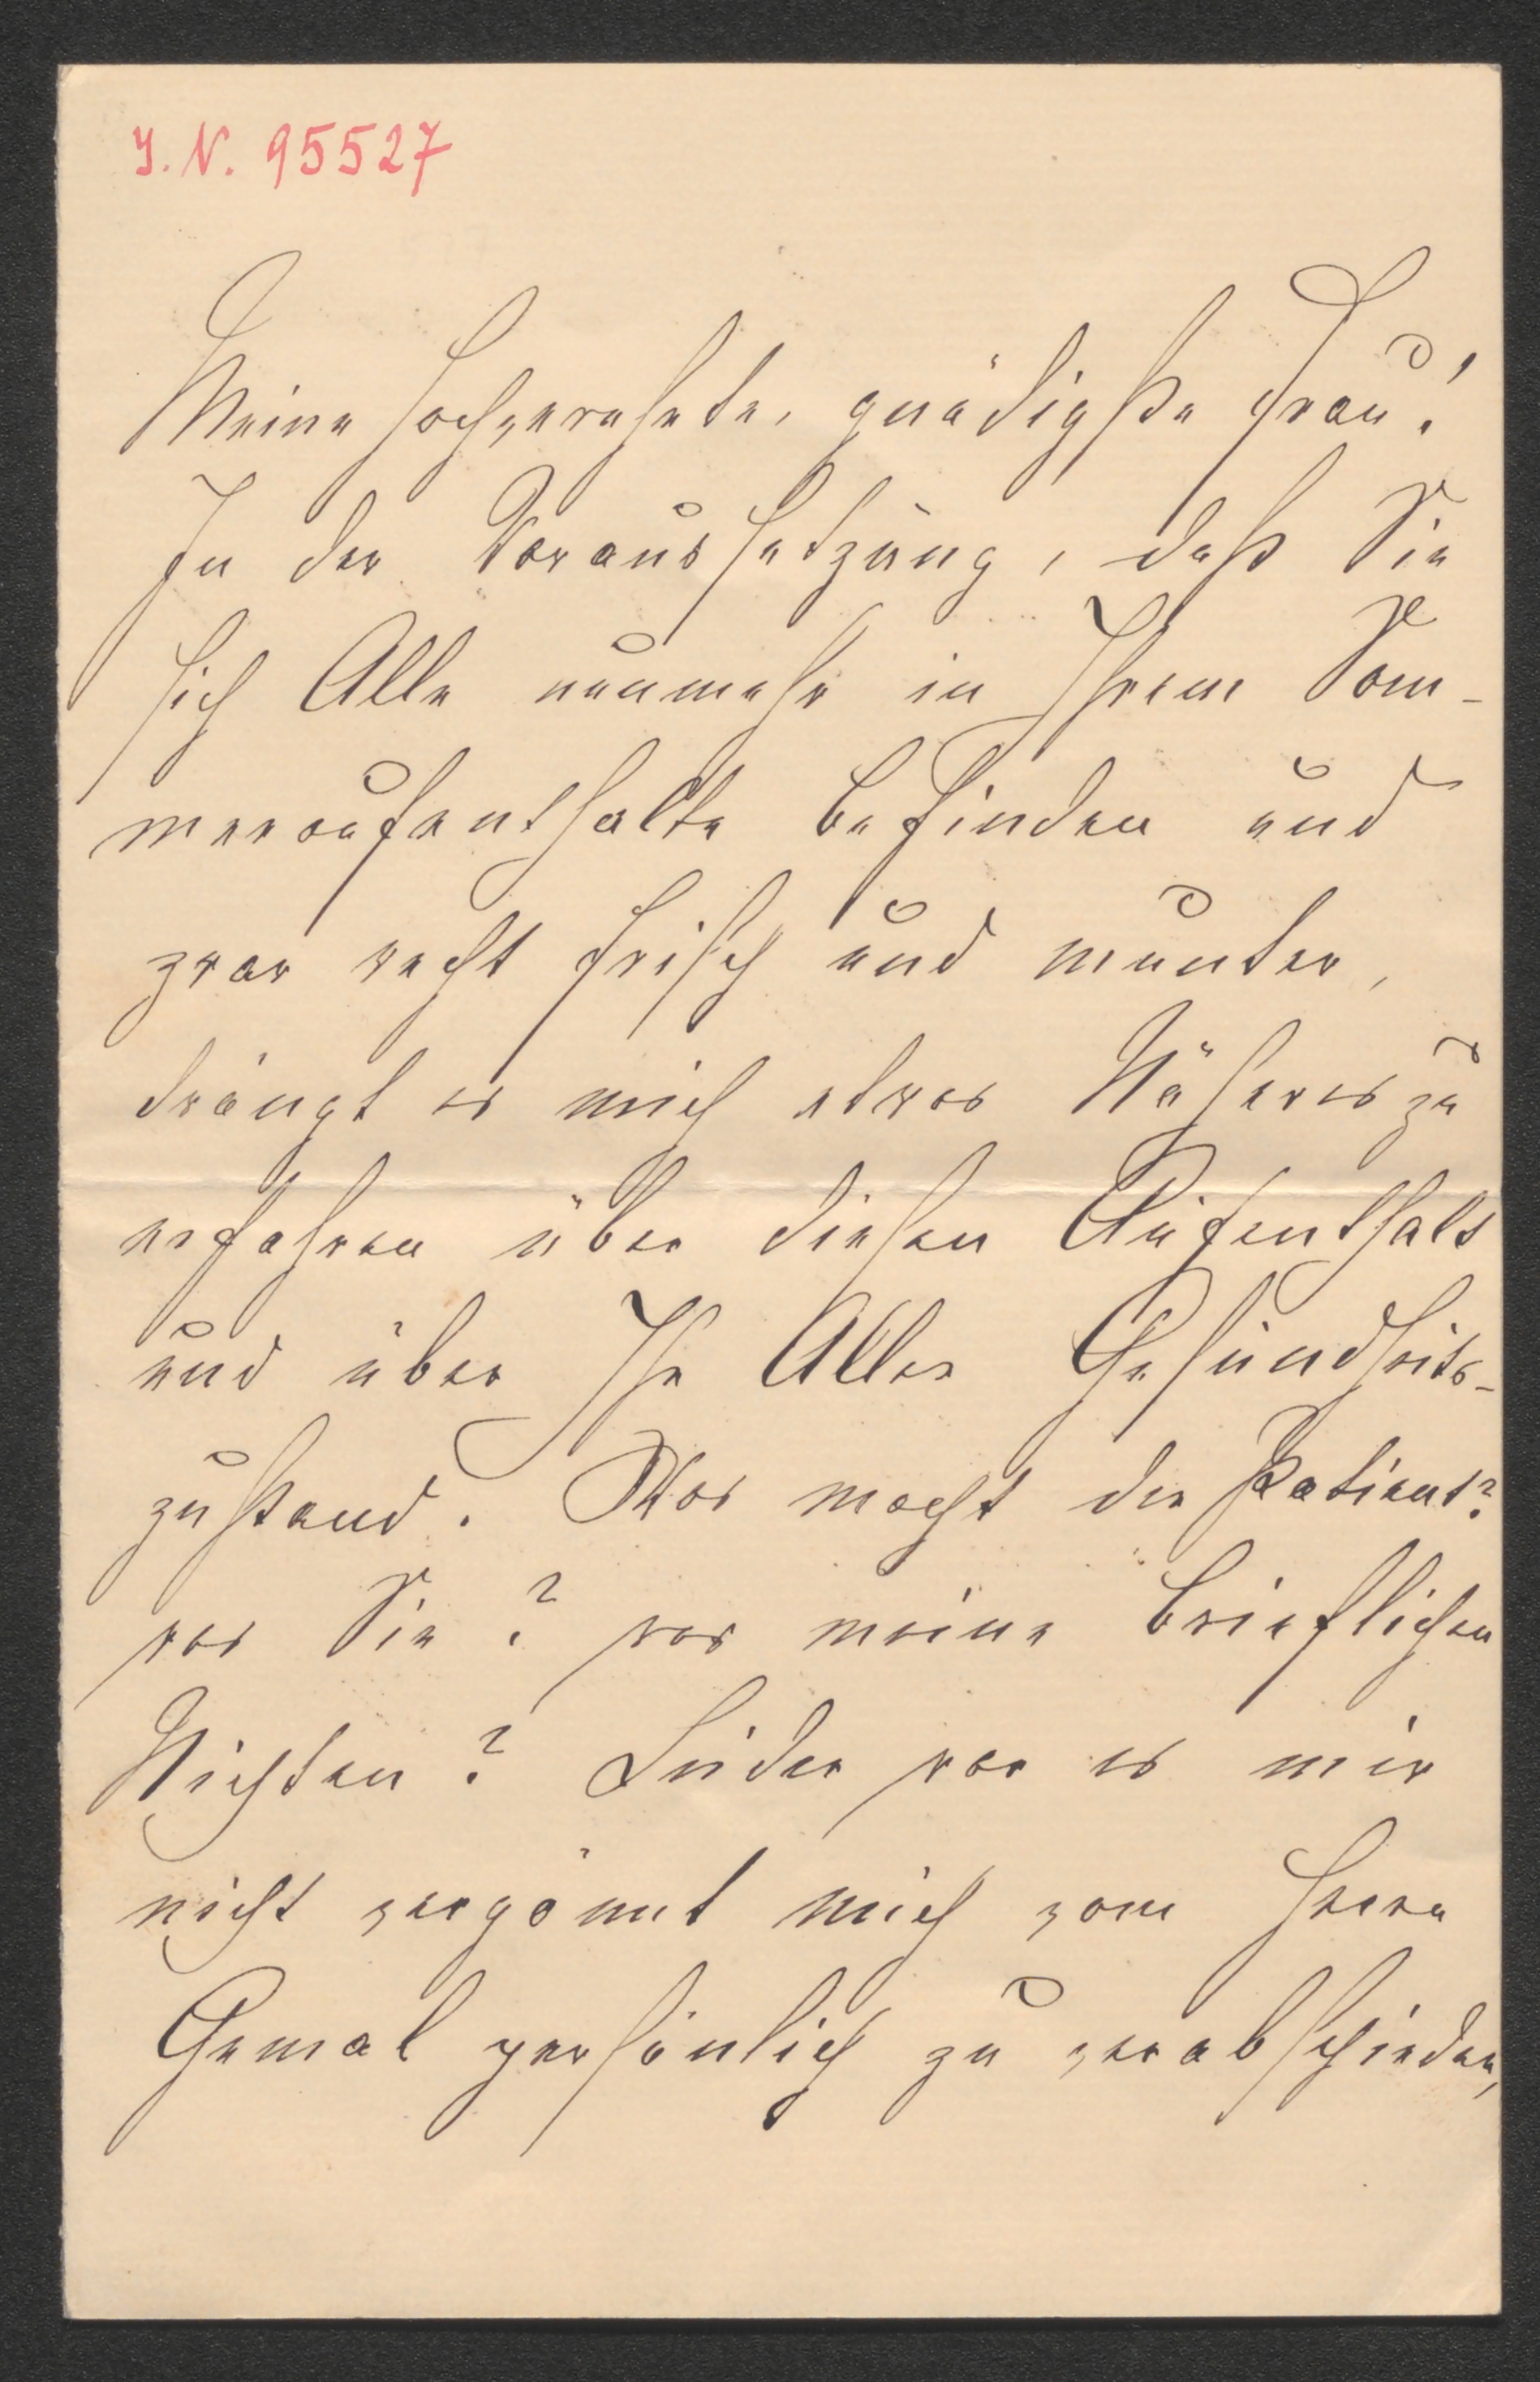 J. N. 95527
Meine hochverehrte, gnädigste Frau!
In der Voraussetzung, daß Sie
sich Alle nunmehr in Ihrem Som-
meraufenthalte befinden und
zwar recht frisch und munter,
drängt es mich etwas Näheres zu
erfahren über diesen Aufenthalt
und über Ihr Aller Gesundheits-
zustand. Was macht der Patient?
was Sie? was meine brieflichen
Nichten? Leider war es mir
nicht vergönnt mich vom Herrn
Gemal persönlich zu verabschieden,